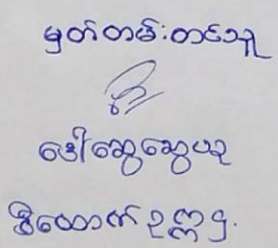 မှတ်တမ်းတင်သူ
ဒေါ်ဆွေဆွေယု
ဒီထောက်ဥက္ကဌ